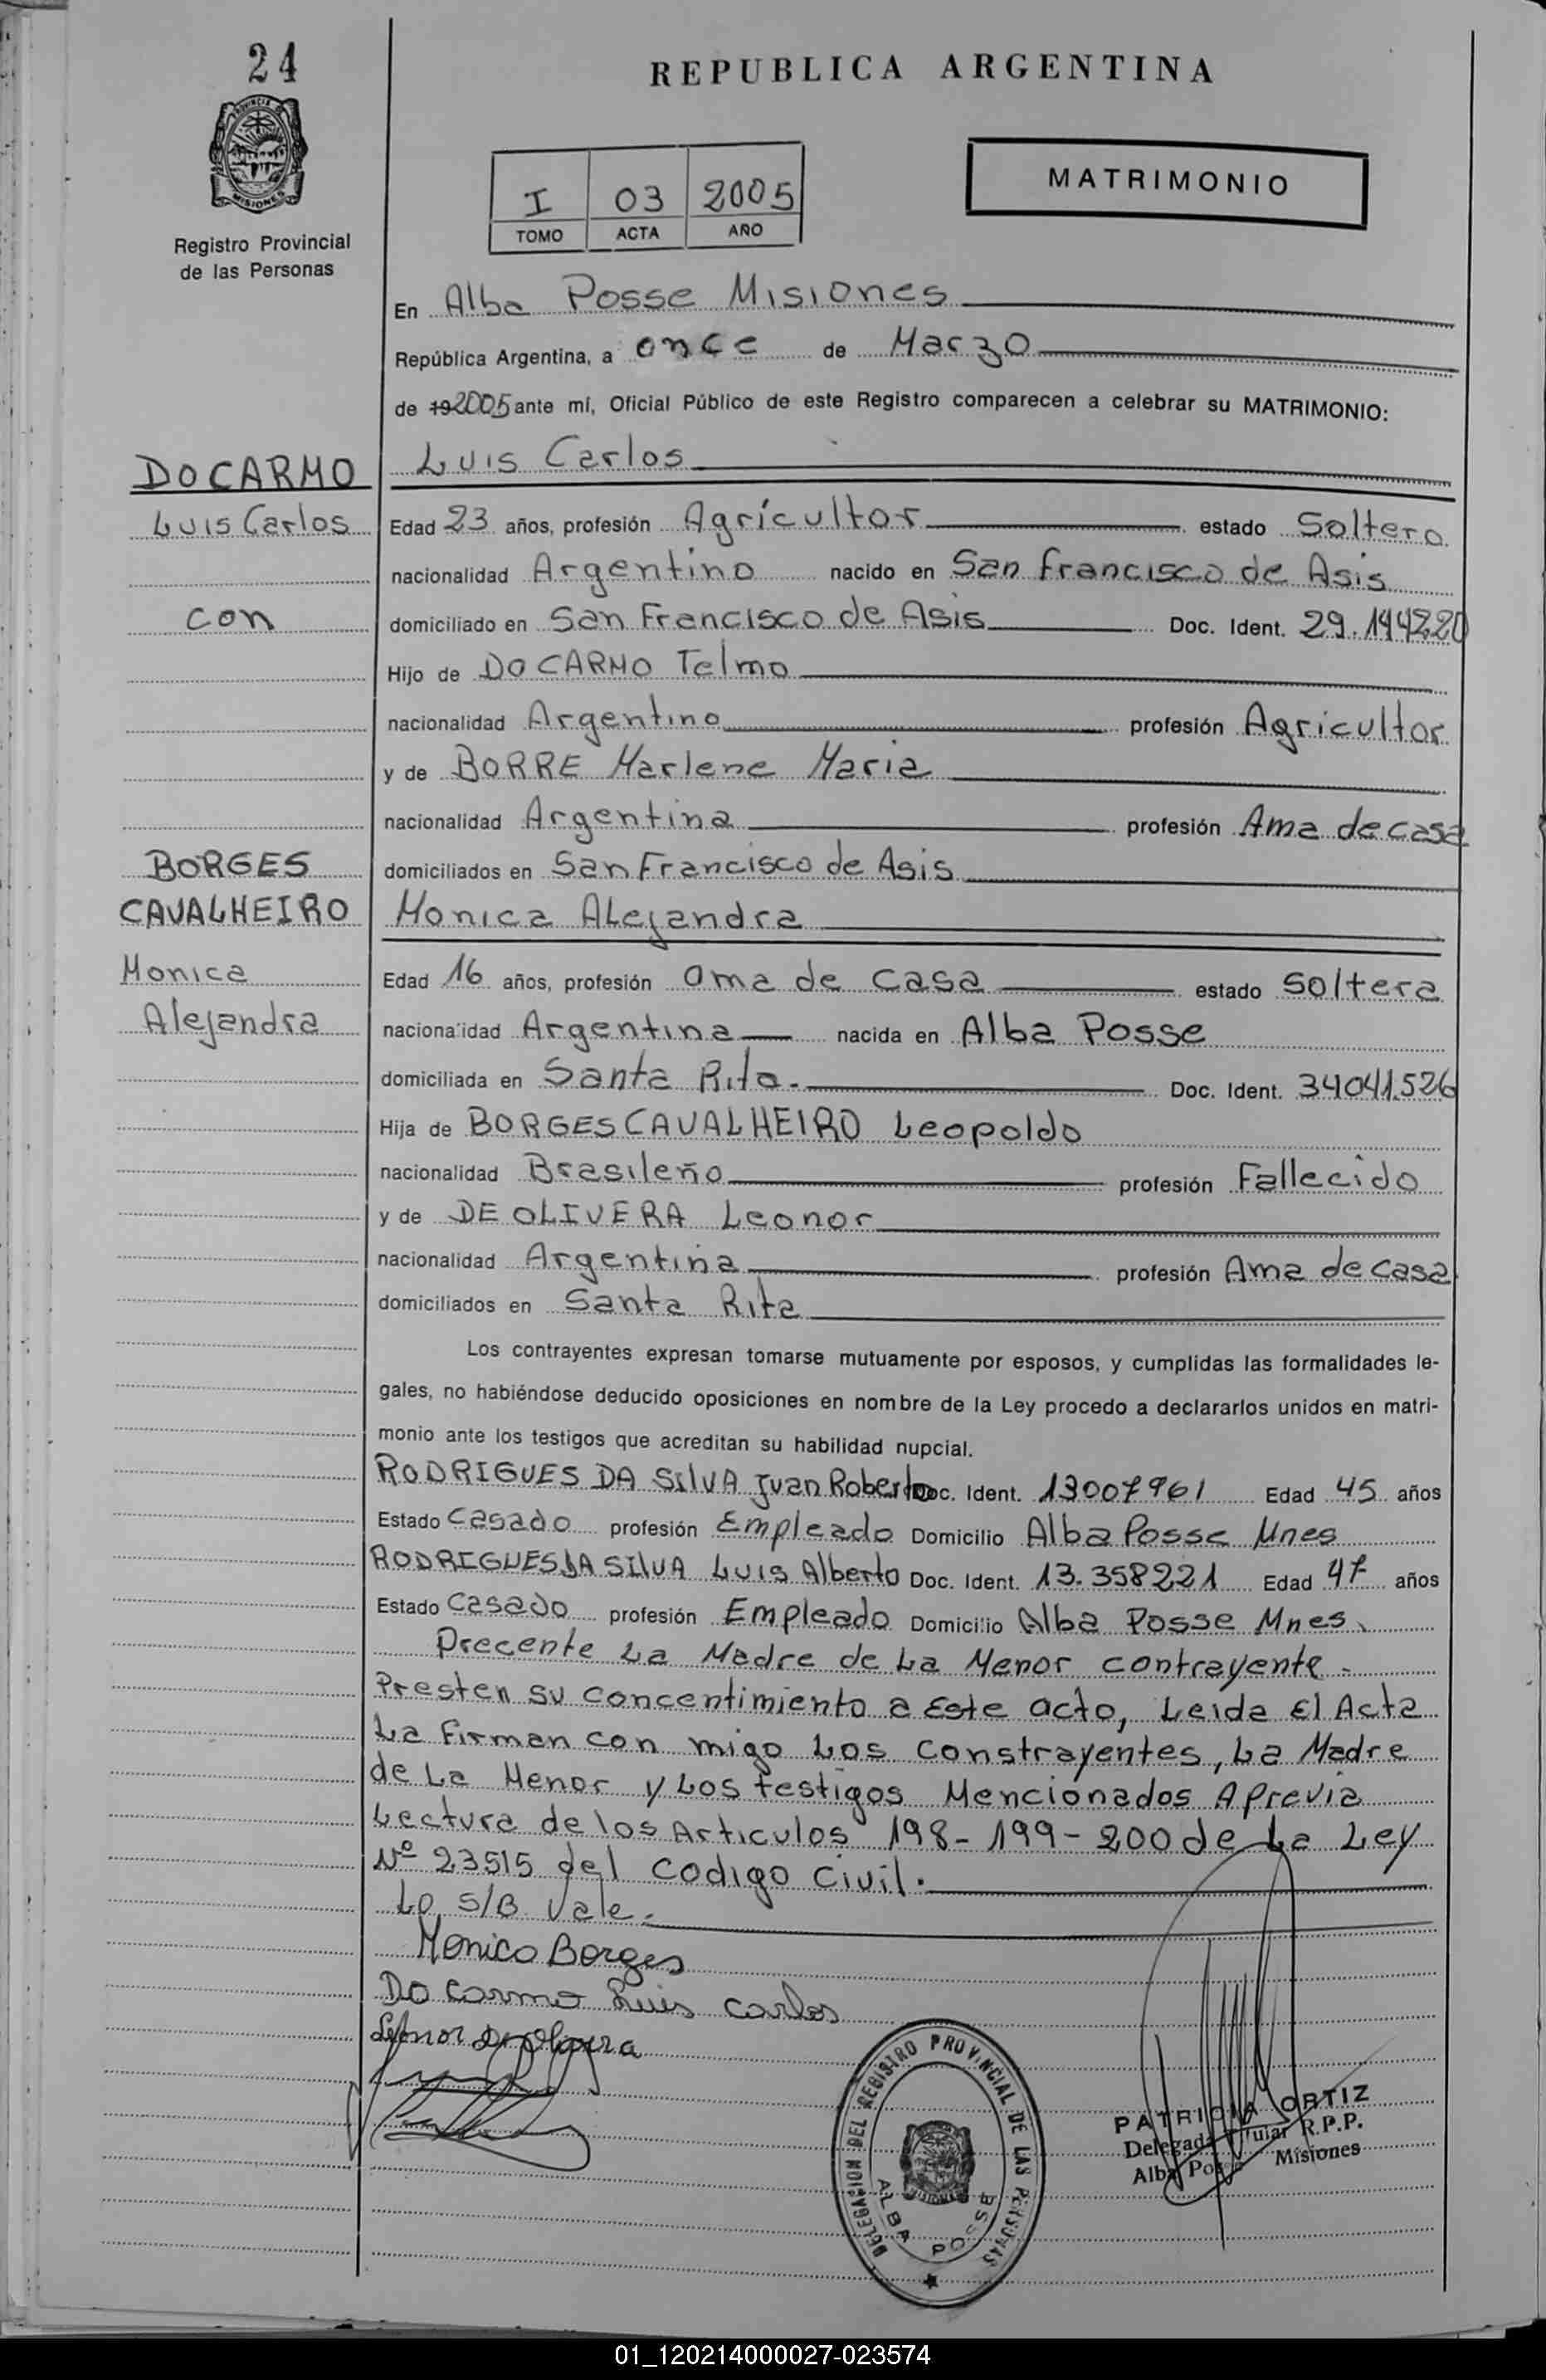 24
REPUBLICA ARGENTINA
MATRIMONIO
I 03 2005
TOMO ACTA AÑO
Registro Provincial
de las Personas
En Alba Posse Misiones
República Argentina, a once de Marzo
de 192005 ante mí, Oficial Público de este Registro comparecen a celebrar su MATRIMONIO:
DO CARMO
Luis Carlos
con
BORGES
CAVALHEIRO
Monica
Alejandra
Luis Carlos
Edad 23 años, profesión Agrícultor estado Soltero
nacionalidad Argentino nacido en San Francisco de Asis
domiciliado en San Francisco de Asis Doc. Ident. 29.144220
Hijo de DO CARMO Telmo
nacionalidad Argentino profesión Agricultor
y de BORRE Marlene Maria
nacionalidad Argentina profesión Ama de casa
domiciliados en San Francisco de Asis
Monica Alejandra
Edad 16 años, profesión ama de casa estado Soltera
nacionalidad Argentina nacida en Alba Posse
domiciliada en Santa Rita. Doc. Ident. 34041.526
Hija de BORGES CAVALHEIRO Leopoldo
nacionalidad Brasileño profesión Fallecido
y de DE OLIVERA Leonor
nacionalidad Argentina profesión Ama de casa
domiciliados en Santa Rita
Los contrayentes expresan tomarse mutuamente por esposos, y cumplidas las formalidades le-
gales, no habiéndose deducido oposiciones en nombre de la Ley procedo a declararlos unidos en matri-
monio ante los testigos que acreditan su habilidad nupcial.
RODRIGUES DA SILVA Juan Roberto Doc. Ident. 13007961 Edad 45 años
Estado Casado profesión Empleado Domicilio Alba Posse Mnes
RODRIGUES DA SILVA Luis Alberto Doc. Ident. 13.358221 Edad 47 años
Estado Casado profesión Empleado Domicilio Alba Posse Mnes.
Precente La Madre de La Menor contrayente.
Presten su concentimiento a Este acto, Leida El Acta
La Firman con migo Los constrayentes, La Madre
de La Menor y Los testigos Mencionados Aprevia
Lectura de los Articulos 198-199-200 de La Ley
Nº 23515 del Codigo Civil.
Lo S/B Vale.
Monica Borges
Do Carmo Luis Carlos
Leonor
DELEGACION DEL REGISTRO PROVINCIAL DE LAS PERSONAS
ALBA POSSE
MISIONES
PATRICIA ORTIZ
Delegada Titular R.P.P.
Alba Posse Misiones
01_120214000027-023574